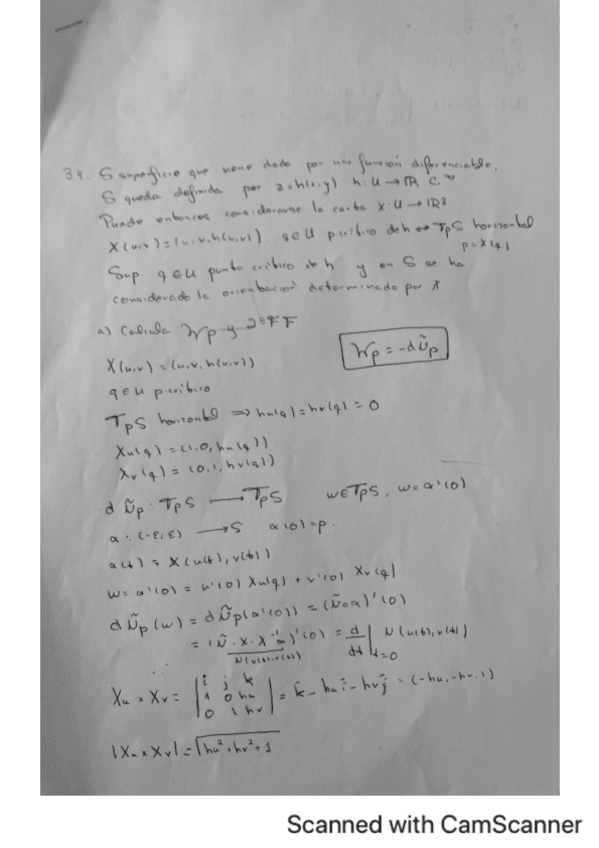 34. S superficie que viene dada por una función diferenciable,
S queda definida por z=h(x,y) h:U→ℝ C∞
Puede entonces considerarse la carta X:U→ℝ³
X(u,v)=(u,v,h(u,v)). q∈U p.crítico de h ↔ TpS horizontal
p=X(q)
Sup. q∈U punto crítico de h y en S se ha
considerado la orientación determinada por X
a) Calcula Wp y 2ª FF
Wp = -dÑp
X(u,v)=(u,v,h(u,v))
q∈U p.crítico
TpS horizontal ⇒ hu(q)=hv(q)=0
Xu(q)=(1,0,hu(q))
Xv(q)=(0,1,hv(q))
dÑp: TpS → TpS w∈TpS, w=α'(0)
α:(-ε,ε) → S α(0)=p.
α(t)=X(u(t),v(t))
w=α'(0)=u'(0) Xu(q) + v'(0) Xv(q)
dÑp(w) = dÑp(α'(0)) = (Ñ∘α)'(0)
= (Ñ·X·X⁻¹α)'(0) = d/dt|t=0 N(u(t),v(t))
N(u(t),v(t))
Xu × Xv = |i j k
1 0 hu
0 1 hv| = k - hu i - hv j = (-hu,-hv,1)
|Xu × Xv| = √hu²+hv²+1
Scanned with CamScanner